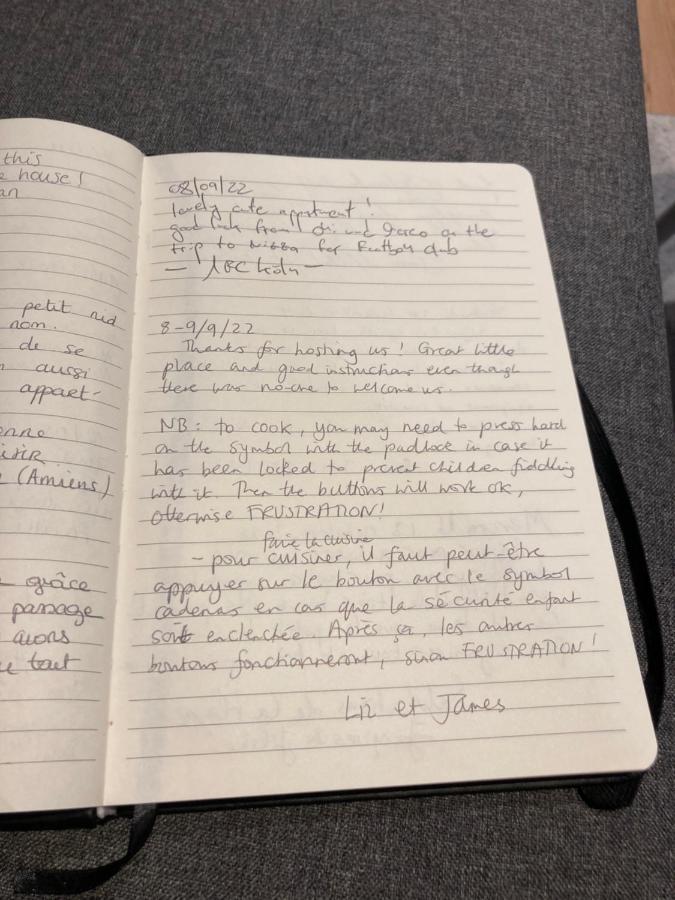 this
house!
an
petit nid
nom.
de se
aussi
appart-
(Amiens)
grâce
passage
avons
tout
08/09/22
lovely cute appartment!
good luck from and on the
trip to Nizza for Football club
— 1. FC Köln —
8-9/9/22
Thanks for hosting us! Great little
place and good instructions even though
there was no-one to welcome us.
NB: to cook, you may need to press hard
on the symbol with the padlock in case it
has been locked to prevent children fiddling
with it. Then the buttons will work ok,
otherwise FRUSTRATION!
faire la cuisine
- pour cuisiner, il faut peut-être
appuyer sur le bouton avec le symbol
cadenas en cas que la sécurité enfant
soit enclenchée. Après ça, les autres
boutons fonctionneront, sinon FRUSTRATION!
Liz et James